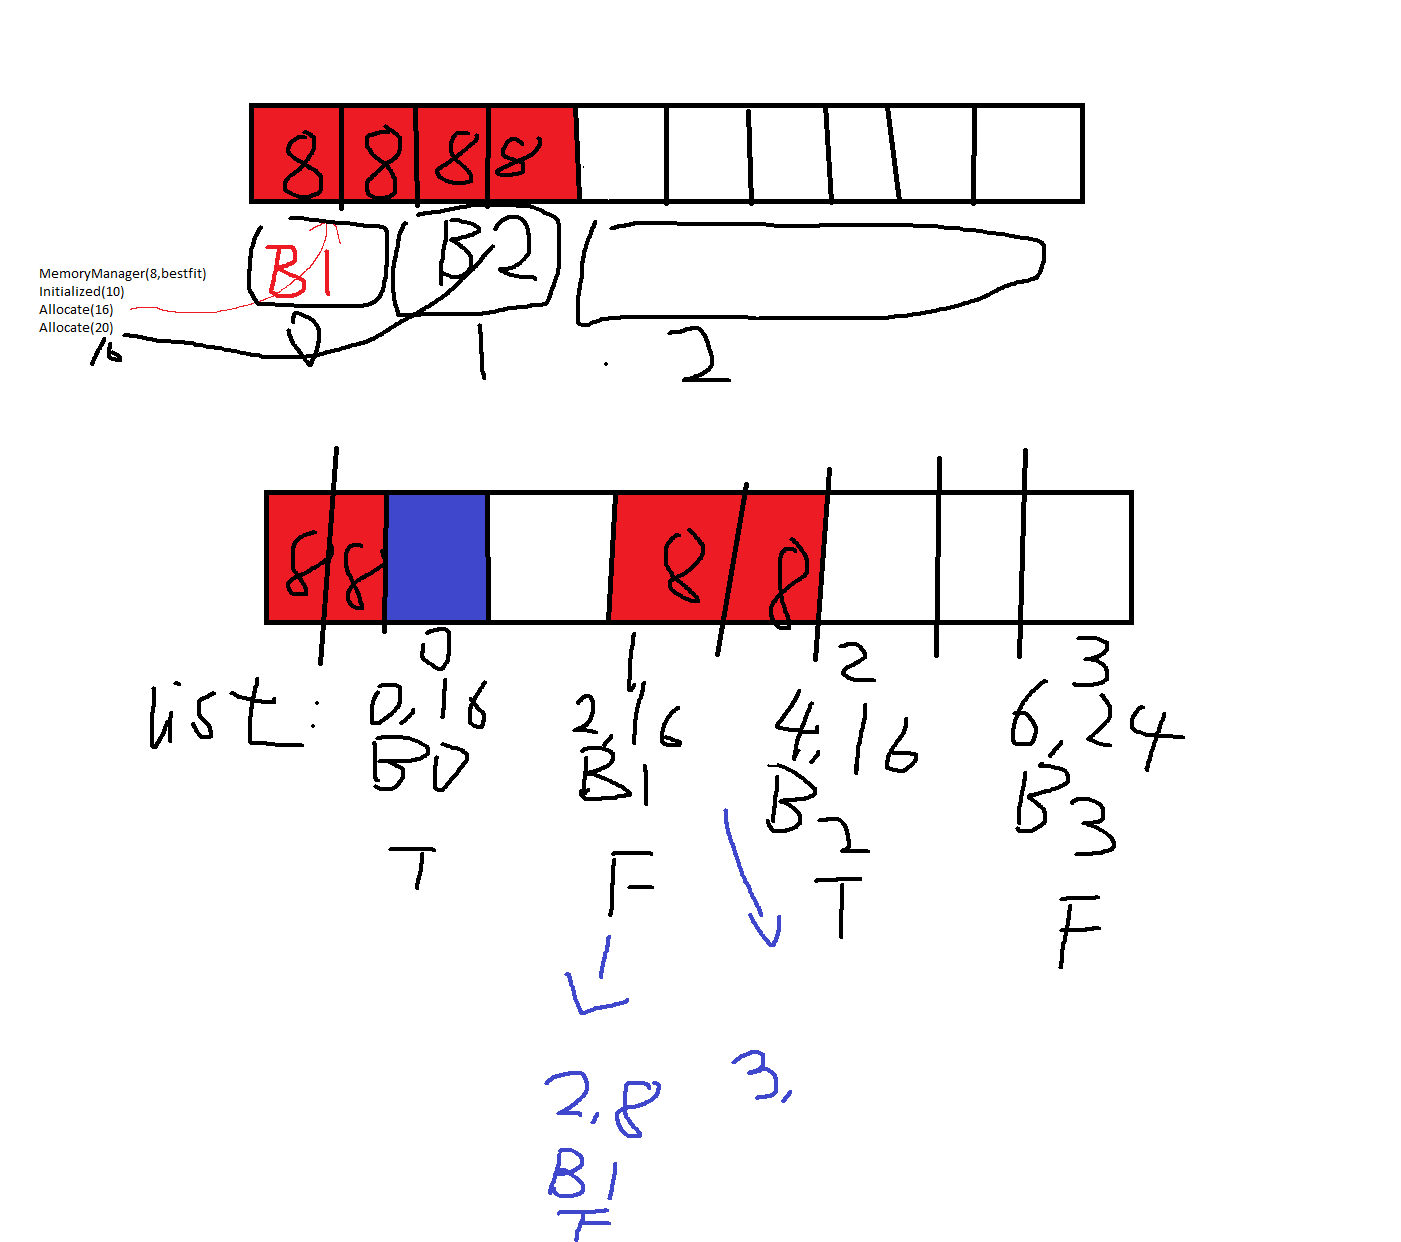 8 8 8 8
B1 B2
MemoryManager(8,bestfit)
Initialized(10)
Allocate(16)
Allocate(20)
16
0 1 2
8 8 8 8
0 1 2 3
list: 0,16 2,16 4,16 6,24
B0 B1 B2 B3
T F T F
2,8 3,
B1